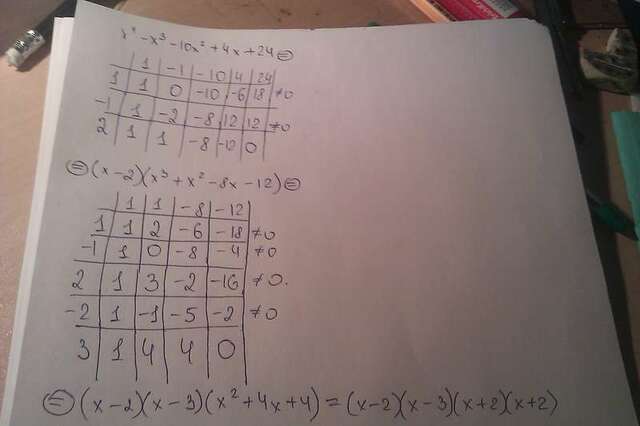 x⁴ - x³ - 10x² + 4x + 24 =
1 -1 -10 4 24
1 1 0 -10 -6 18 ≠0
-1 1 -2 -8 12 12 ≠0
2 1 1 -8 -12 0
= (x-2)(x³ + x² - 8x - 12) =
1 1 -8 -12
1 1 2 -6 -18 ≠0
-1 1 0 -8 -4 ≠0
2 1 3 -2 -16 ≠0.
-2 1 -1 -5 -2 ≠0
3 1 4 4 0
= (x-2)(x-3)(x² + 4x + 4) = (x-2)(x-3)(x+2)(x+2)